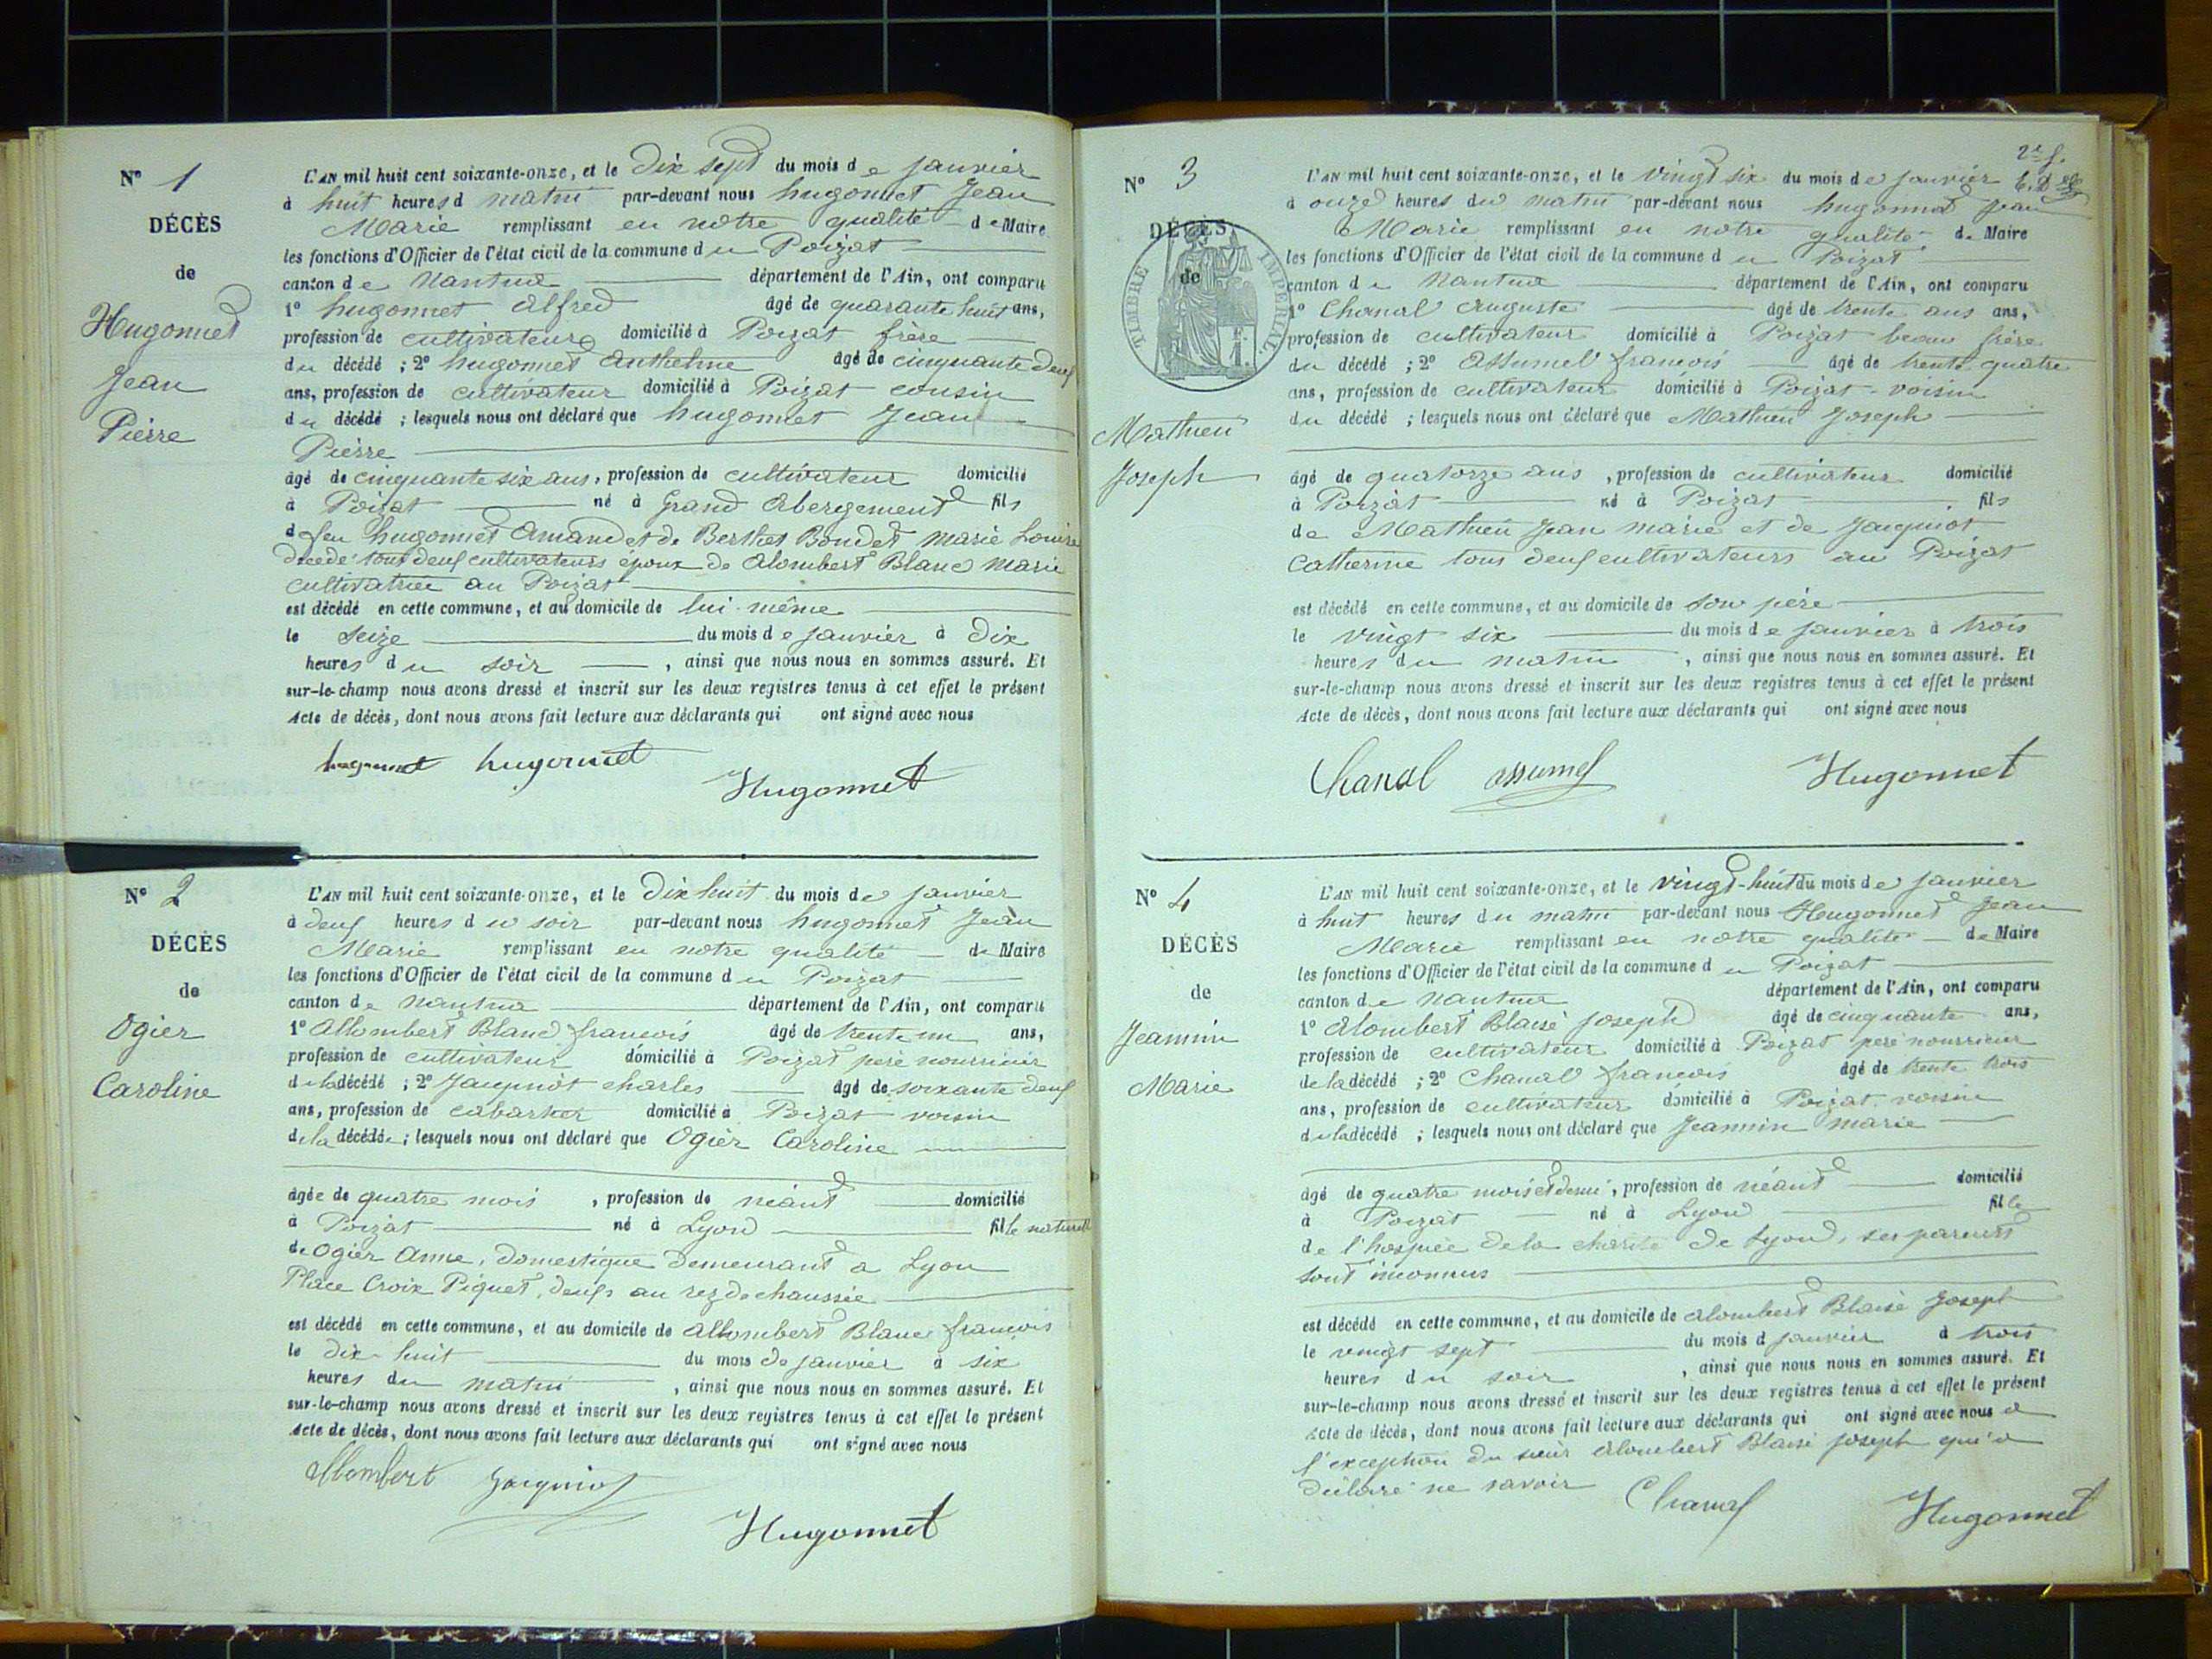 N° 1
DÉCÈS
de
Hugonnet
Jean
Pierre
L'AN mil huit cent soixante-onze, et le Dix sept du mois de janvier
à huit heures d matin par-devant nous hugonnet Jean
Marie remplissant en notre qualité de Maire
les fonctions d'Officier de l'état civil de la commune du Poizat
canton de Nantua département de l'Ain, ont comparu
1° hugonnet alfred âgé de quarante huit ans,
profession de cultivateur domicilié à Poizat frère
du décédé ; 2° hugonnet Anthelme âgé de cinquante deux
ans, profession de cultivateur domicilié à Poizat cousin
du décédé ; lesquels nous ont déclaré que hugonnet Jean
Pierre
âgé de cinquante six ans, profession de cultivateur domicilié
à Poizat né à Grand Abergement fils
de feu hugonnet Amand et de Berthet Bondet Marie Louise
décédé tout deux cultivateurs époux de Alombert Blanc Marie
cultivatrice au Poizat
est décédé en cette commune, et au domicile de lui-même
le Seize du mois de janvier à Dix
heures du soir , ainsi que nous nous en sommes assuré. Et
sur-le-champ nous avons dressé et inscrit sur les deux registres tenus à cet effet le présent
Acte de décès, dont nous avons fait lecture aux déclarants qui ont signé avec nous
hugonnet hugonnet
Hugonnet
N° 2
DÉCÈS
de
Ogier
Caroline
L'AN mil huit cent soixante-onze, et le Dix huit du mois de janvier
à deux heures du soir par-devant nous hugonnet Jean
Marie remplissant en notre qualité de Maire
les fonctions d'Officier de l'état civil de la commune du Poizat
canton de nantua département de l'Ain, ont comparu
1° Allombert Blanc françois âgé de trente un ans,
profession de cultivateur domicilié à Poizat père nourricier
de la décédé ; 2° Jacquiot charles âgé de soixante deux
ans, profession de cabartier domicilié à Poizat voisin
de la décédée ; lesquels nous ont déclaré que Ogier Caroline
âgée de quatre mois , profession de néant domicilié
à Poizat né à Lyon fille naturelle
de Ogier Anne, domestique demeurant a Lyon
Place Croix Piquet, deux au rez de chaussée
est décédé en cette commune, et au domicile de Allombert Blanc françois
le dix-huit du mois de janvier à six
heures du matin , ainsi que nous nous en sommes assuré. Et
sur-le-champ nous avons dressé et inscrit sur les deux registres tenus à cet effet le présent
Acte de décès, dont nous avons fait lecture aux déclarants qui ont signé avec nous
Allombert Jacquiot
Hugonnet
2e f.
N° 3
DÉCÈS
de
TIMBRE IMPÉRIAL
Mathieu
Joseph
L'AN mil huit cent soixante-onze, et le vingt six du mois de janvier
à onze heures du matin par-devant nous hugonnet Jean
Marie remplissant en notre qualité de Maire
les fonctions d'Officier de l'état civil de la commune du Poizat
canton de Nantua département de l'Ain, ont comparu
1° Chanal Auguste âgé de trente ans ans,
profession de cultivateur domicilié à Poizat beau frère
du décédé ; 2° Assumel françois âgé de trente-quatre
ans, profession de cultivateur domicilié à Poizat - voisin
du décédé ; lesquels nous ont déclaré que Mathieu Joseph
âgé de quatorze ans , profession de cultivateur domicilié
à Poizat né à Poizat fils
de Mathieu Jean marie et de Jacquiot
Catherine tous deux cultivateurs au Poizat
est décédé en cette commune, et au domicile de son père
le vingt six du mois de janvier à trois
heures du matin , ainsi que nous nous en sommes assuré. Et
sur-le-champ nous avons dressé et inscrit sur les deux registres tenus à cet effet le présent
Acte de décès, dont nous avons fait lecture aux déclarants qui ont signé avec nous
Chanal assumel Hugonnet
N° 4
DÉCÈS
de
Jeannin
Marie
L'AN mil huit cent soixante-onze, et le vingt-huit du mois de janvier
à huit heures du matin par-devant nous Hugonnet Jean
Marie remplissant en notre qualité de Maire
les fonctions d'Officier de l'état civil de la commune du Poizat
canton de Nantua département de l'Ain, ont comparu
1° Alombert Blaise joseph âgé de cinquante ans,
profession de cultivateur domicilié à Poizat père nourricier
de la décédé ; 2° Chanal françois âgé de trente trois
ans, profession de cultivateur domicilié à Poizat voisin
de la décédé ; lesquels nous ont déclaré que Jeannin marie
âgé de quatre mois et demi , profession de néant domicilié
à Poizat né à Lyon fille
de l'hospice de la charité de Lyon, ses parents
sont inconnus
est décédé en cette commune, et au domicile de Alombert Blaise Joseph
le vingt sept du mois d janvier à trois
heures du soir , ainsi que nous nous en sommes assuré. Et
sur-le-champ nous avons dressé et inscrit sur les deux registres tenus à cet effet le présent
Acte de décès, dont nous avons fait lecture aux déclarants qui ont signé avec nous a
l'exception du sieur Alombert Blaise joseph qui a
déclaré ne savoir Chanal Hugonnet